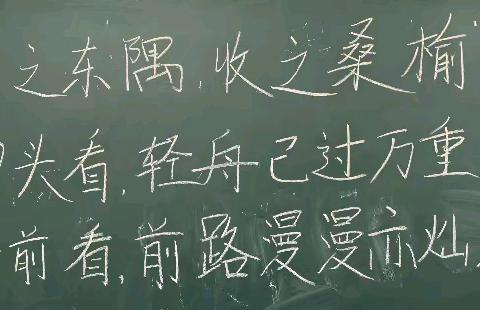 之东隅,收之桑榆
头看,轻舟已过万重
前看,前路漫漫亦灿